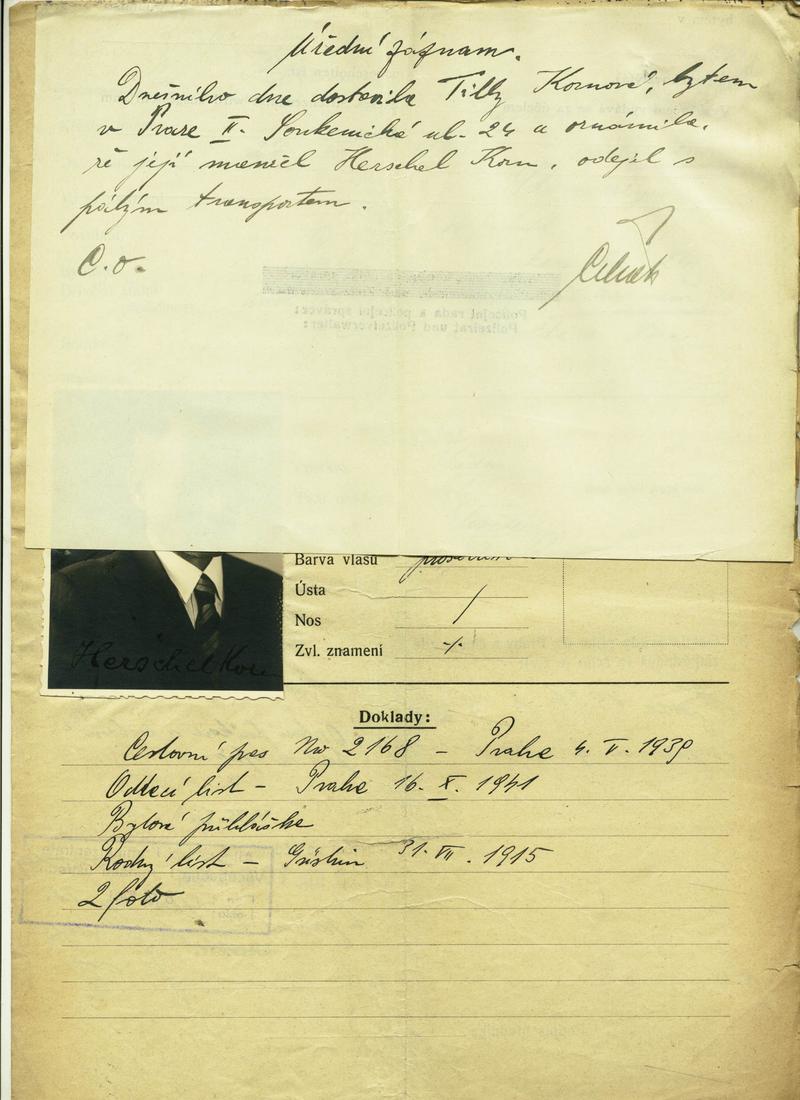 Úřední záznam.
Dnešního dne dostavila Tilly Kornová, bytem
v Praze II. Soukenická ul. 24 a oznámila,
že její manžel Herschel Korn, odejel s
pátým transportem.
C.o.
Policejní rada a policejní správce:
Polizeirat und Polizeiverwalter:
Barva vlasů
Ústa /
Nos
Zvl. znamení
Herschel Korn
Doklady:
Cestovní pas No 2168 – Prahe 4. V. 1939
Oddací list – Prahe 16. X. 1941
Bytová přihláška
Rodný list – 31. VII. 1915
2 foto